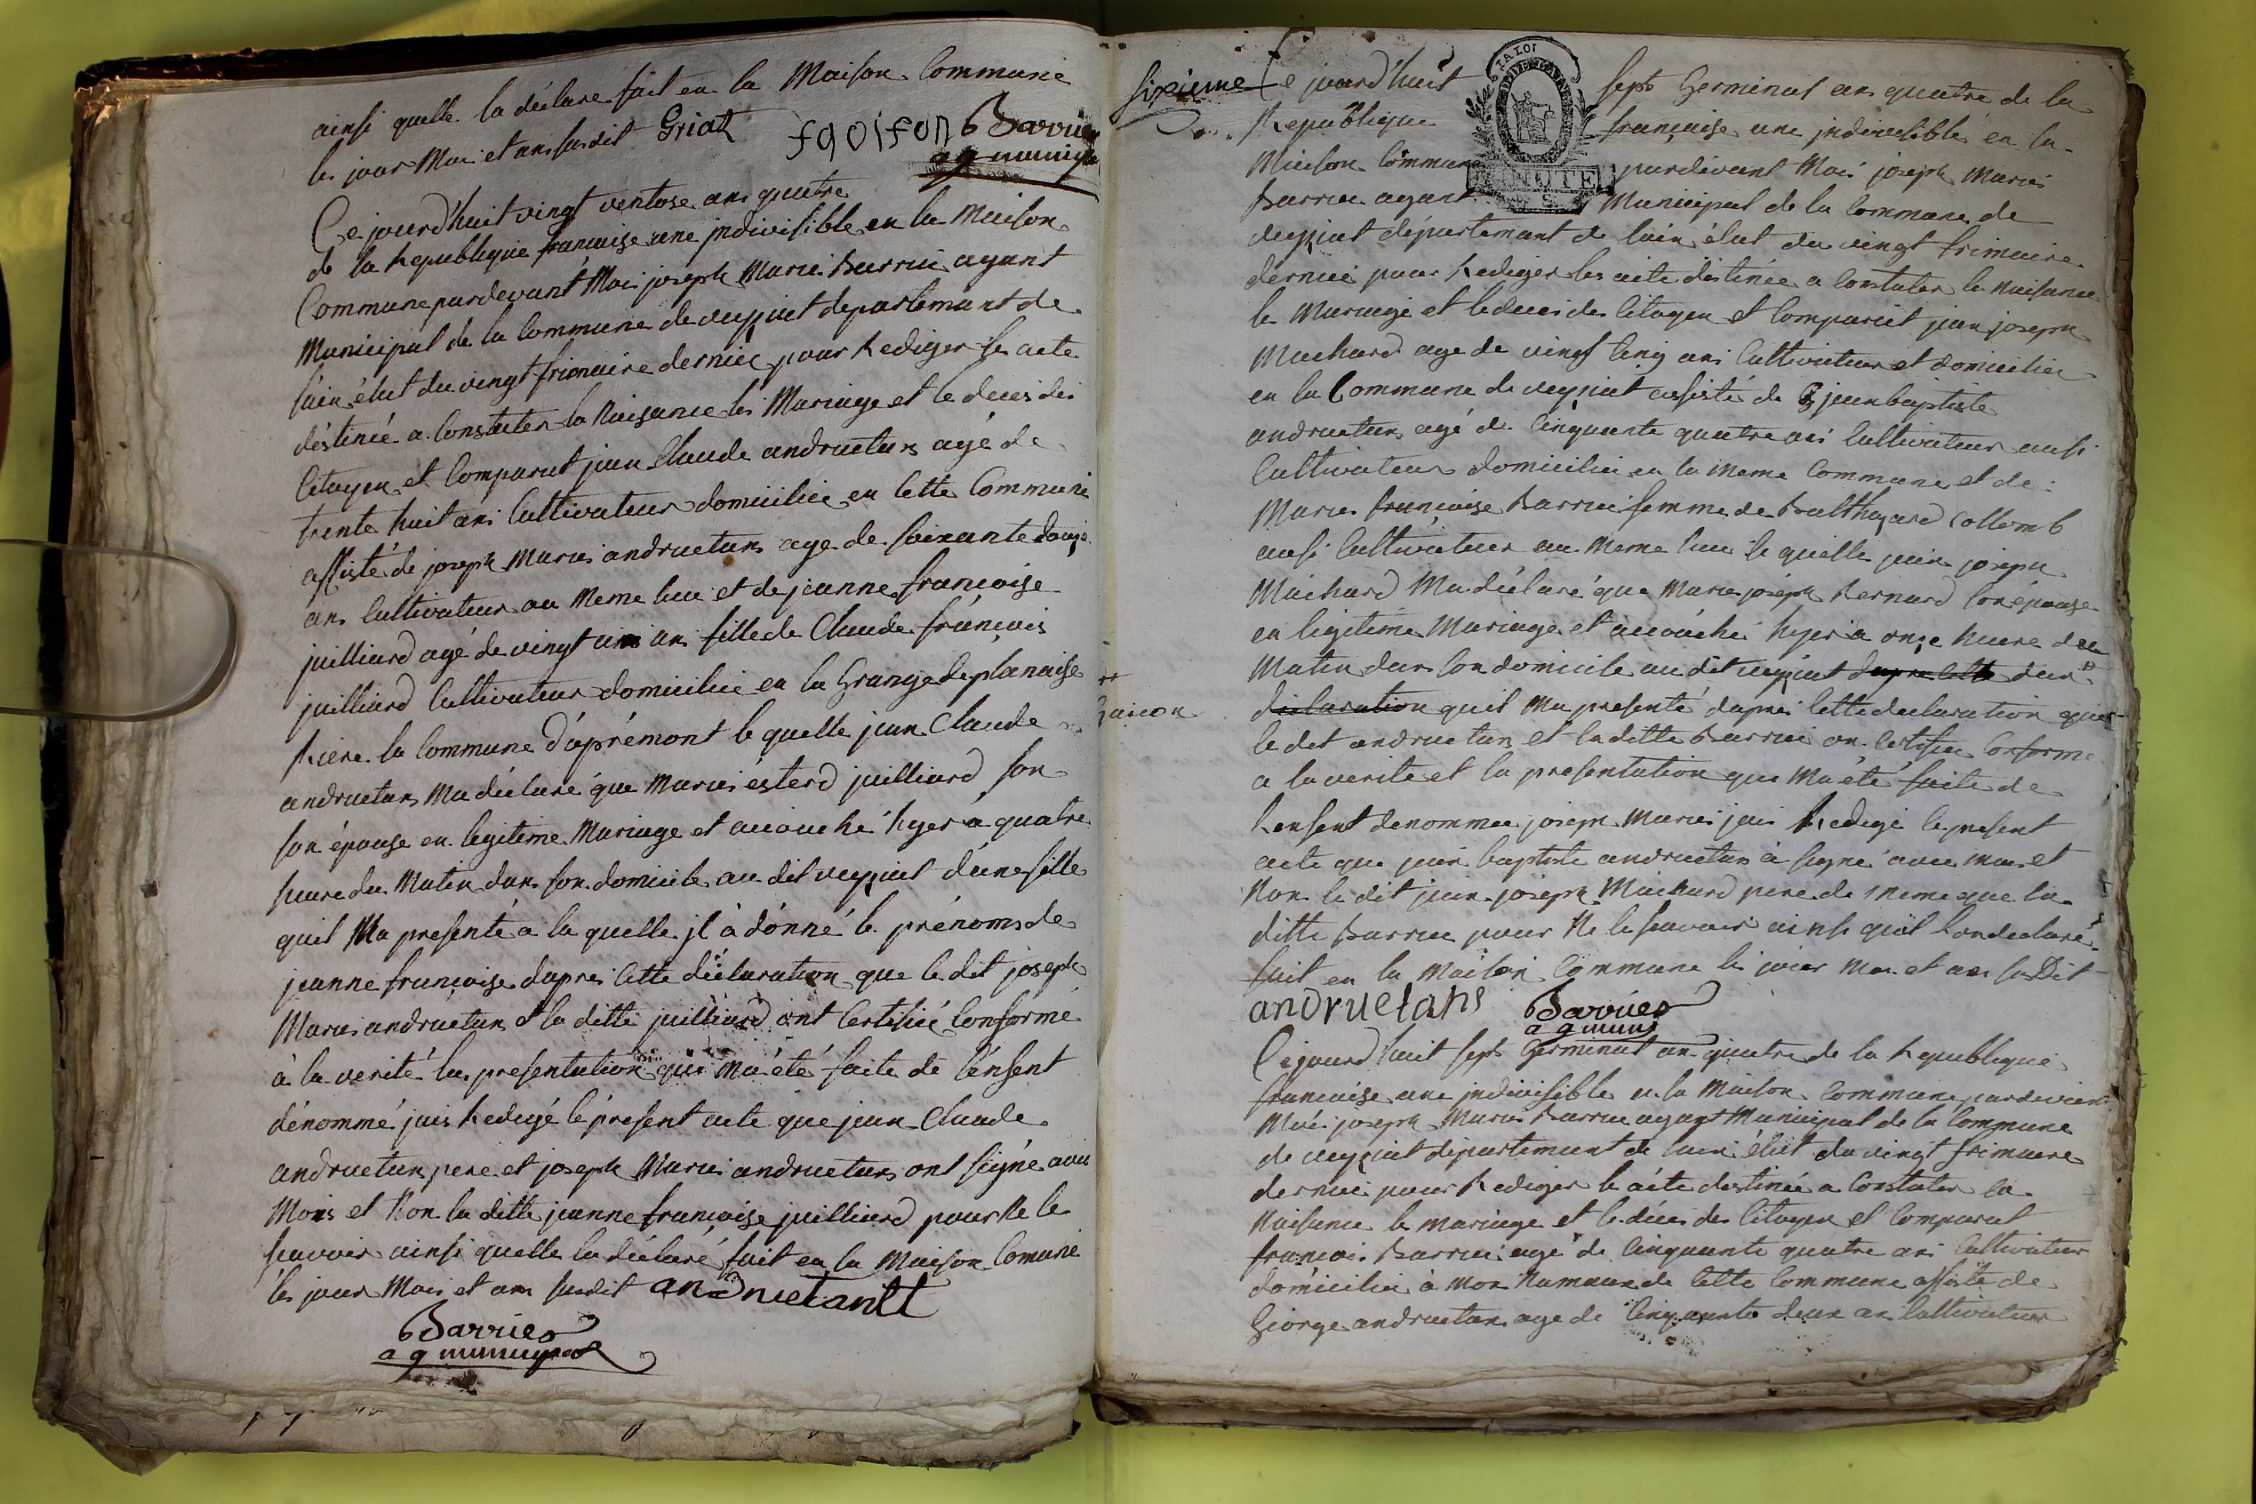 ainsi quelle la déclare fait en la Maison Commune
les jour Moi et an susdit Griat faoifon Barrier
ag municipal
Ce jourd'huit vingt ventose an quatre
de la Republique francaise une jndivisible en la Maison
Commune pardevant Moi joseph Marie Barrie agant
Municipal de la Commune de veyziat departemant de
lain élut du vingt frimaire dernier pour Rediger le acte
déstinée a Constater la Naisance les Mariage et le deces des
Citoyen et Comparut jean Claude andruetan agé de
trente huit ans Cultivateur domicilié en Cette Commune
assisté de joseph Marie andruetan age de soixante douze
ans Cultivateur au Meme lieu et de jeanne francoise
juilliard agé de vingt un an fille de Claude francois
juilliard Cultivateur domicilié en la Grange de planaise
Riere la Commune d'aprémont le quelle jean Claude
andruetan Ma déclaré que Marie ésterd juilliard son
son épouse en legitime Mariage et acouché hyer a quatre
heure du Matin dans son domicile au dit veyziat d'une fille
quil Ma presenté a la quelle jl à dónné le prénoms de
jeanne francoise dapres Cette déclaration que le dit joseph
Marie andruetan et la ditte juilliard ont Certifié Conforme
à la verité la presentation qui ma été faite de l'énfent
dénommé jais Redigé lé présent acte que jean Claude
andruetan pere et joseph Marie andruetan ont signé avec
Mois et Non la ditte jeanne francoise juilliard pour Ne le
scavoir ainsi quelle la déclaré fait en la Maison Comune
lés jour Mois et an susdit andruetantt
Barrier
ag municipal
sixieme Ce jourd'huit sept Germinal an quatre de la
LA LOI
Republique francaise une jndivisible en la
Maison Commune pardevant Moi joseph Marie
Barrie agant Municipal de la Commune de
veyziat département de lain élut du vingt frimaire
dernier pour Rediger les acte déstinée a Constater la Naisance
le Mariage et le deces des Citoyen et Comparut jean joseph
Machard age de vingt Cinq ans Cultivateur et domicilié
en la Commune de veyziat assisté de jean baptiste
andruetan agé de Cinquante quatre ans Cultivateur ausi
Cultivateur domicilié en la Meme Commune et de
Marie francoise Barrie femme de Balthazard Collomb
ausi Cultivateur au Meme lieu le quelle jean joseph
Machard Ma déclaré que Marie joseph Bernard son épouse
en legitime Mariage et acouché hyer a onze heure du
Matin dans son domicile au dit veyziat dapre cette dun
garcon
declaration quil Ma presenté dapres Cette declaration que
le dit andruetan et la ditte Barrie on Certifié Conforme
a la verité et la presentation que Ma été faite de
lenfent denommee joseph Marie jais Redigé le present
acte que jean baptiste andruetan à signé avec moi et
Non le dit jean joseph Machard pere de meme que la
ditte Barrie pour Ne le scavoir ainsi quil l'on declaré
fait en la Maison Commune les jour Moi et an susdit
andruetans Barrier
ag munis
Ce jourd huit sept Germinal an quatre de la Republique
francaise une jndivisible en la Maison Commune pardevant
Moi joseph Marie Barrie agant Municipal de la Commune
de veyziat département de lain élut du vingt frimaire
dernier pour Rediger le acte destinée a Constater la
Naisance le mariage et le déces des Citoyen et Comparut
francois Barrie agé de Cinquante quatre ans Cultivateur
domicilié à Mon hameau de Cette Commune assisté de
George andruetan age de Cinquante deux an Cultivateur